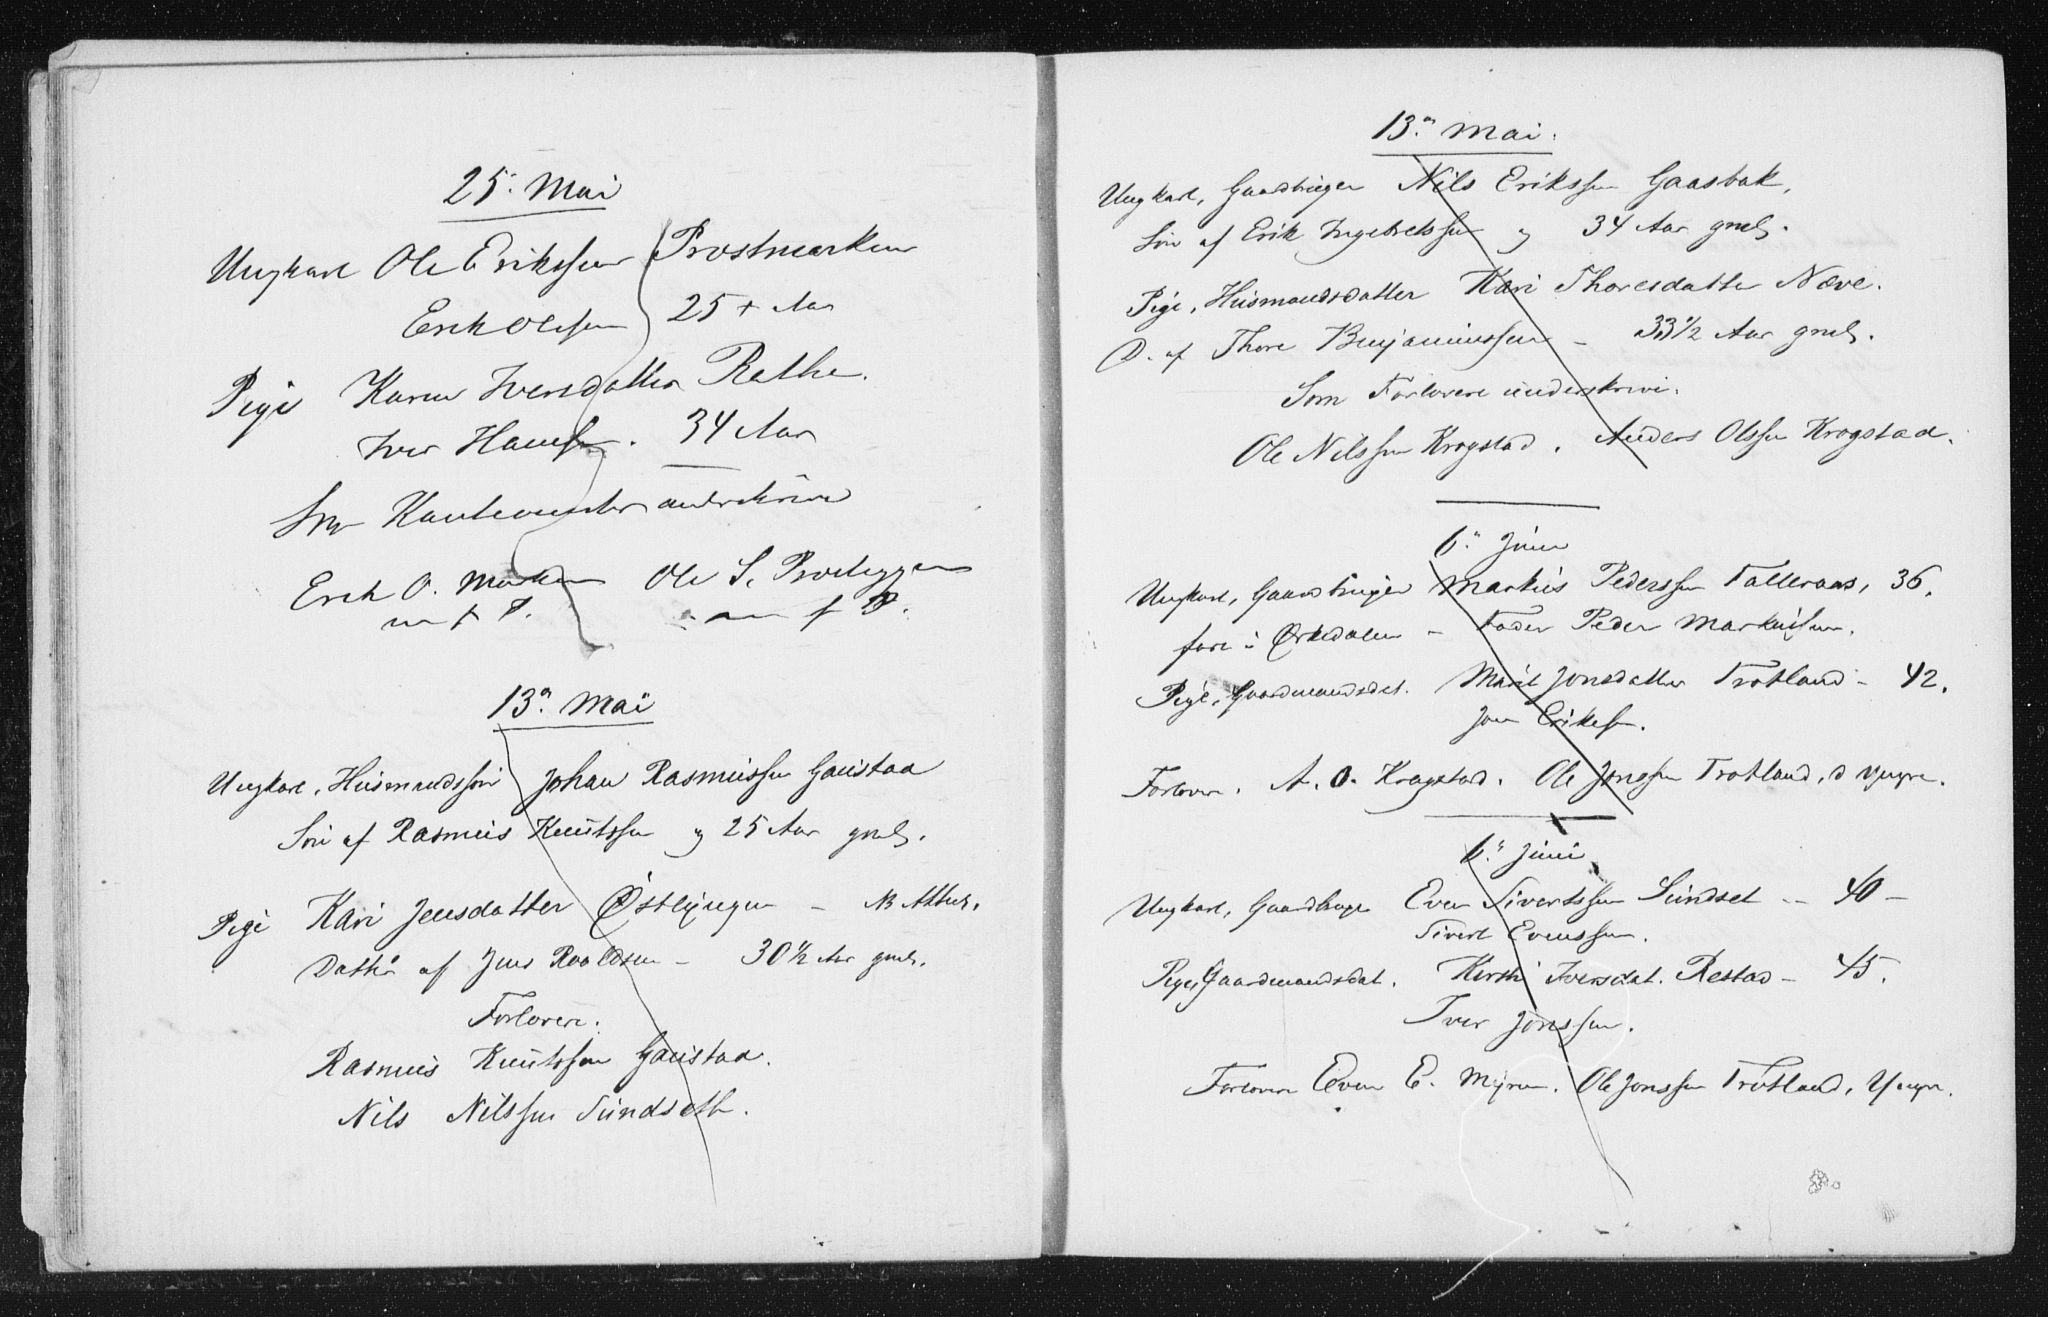 25. Mai
Ungkarl Ole Erikssen Prostmarken
Erik Olsen 25 + Aar
Pige Karen Iversdatter Rethe.
Iver Hansen. 34 Aar
Som Kautionister underskrive
Erik O. Marken Ole S. Prosteggen
m f P. m f P.
13. Mai
Ungkarl, Husmandssøn Johan Rasmussen Gaustaa
Søn af Rasmus Knutssen og 25 Aar gml.
Pige Kari Jensdatter Østlyngen – NB Attest.
Datter af Jens Roaldsen – 30 1/2 Aar gml.
Forlovere.
Rasmus Knutssen Gaustaa.
Nils Nilssen Sundseth.
13. Mai.
Ungkarl, Gaardbruger Nils Erikssen Gaasbak,
Søn af Erik Ingebretssen og 34 Aar gml.
Pige, Husmandsdatter Kari Thoresdatter Næve.
D. af Thore Benjaminssen – 33 1/2 Aar gml.
Som Forlovere underskrive.
Ole Nilssen Krogstad. Anders Olssen Krogstad.
6. Juni
Ungkarl, Gaardbruger Markus Pederssen Talleraas, 36.
fare i Ørkedalen – Fader Peder Markussen.
Pige, Gaardmandsdat. Marit Jonsdatter Trotland – 42.
Jon Eriksen.
Forlovere. A. O. Krogstad. Ole Jonssen Trotland, d yngre.
6. Juni
Ungkarl, Gaardbruger Even Sivertssen Sundset – 40 –
Sivert Evenssen.
Pige, Gaardmandsdat. Kersti Iversdat. Restad – 45.
Iver Jonssen.
Forlovere Even E. Myren. Ole Jonssen Trotland, Yngre.